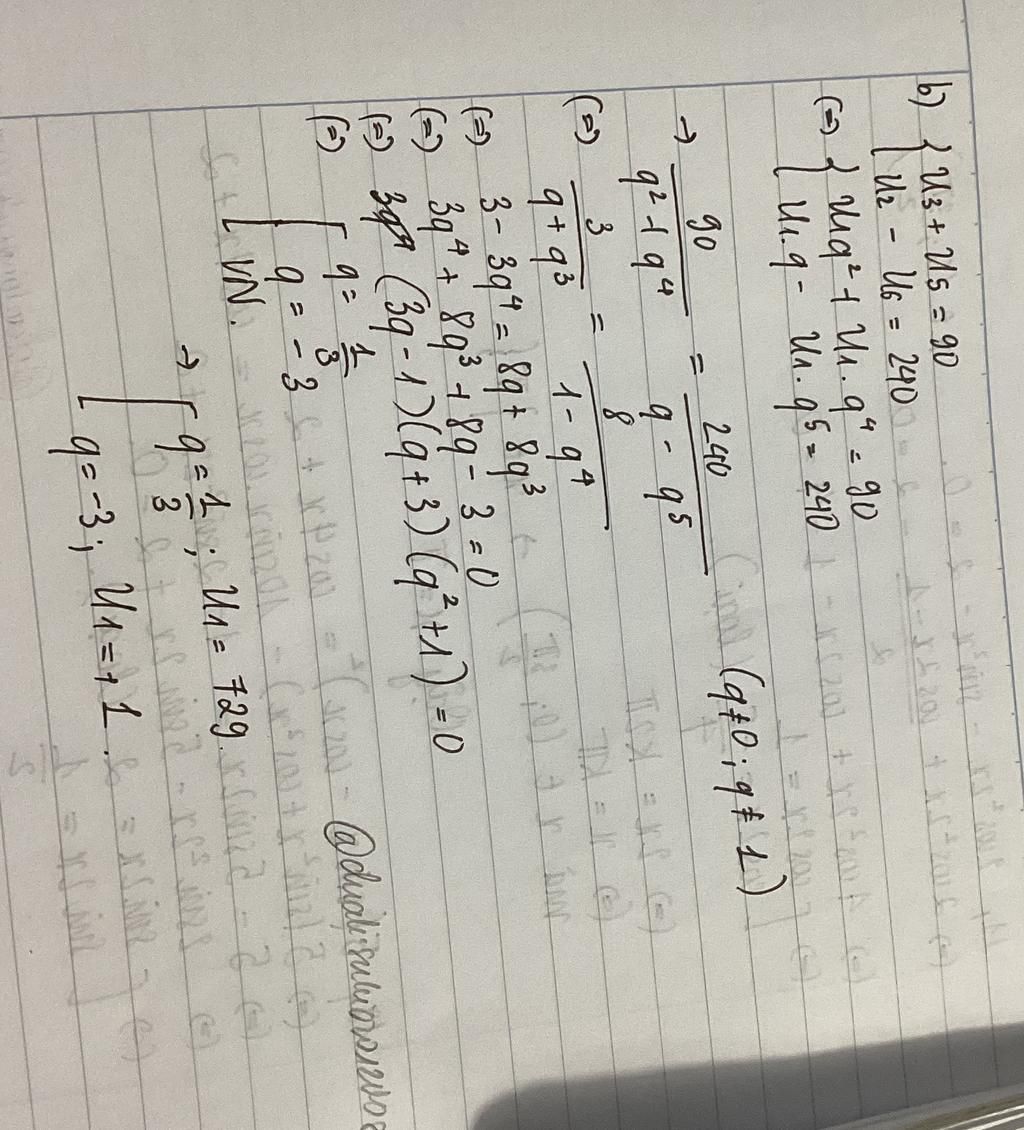 b) { u3 + u5 = 90
u2 - u6 = 240
(=) { u1q² + u1.q⁴ = 90
u1.q - u1.q⁵ = 240
→ 90/(q² + q⁴) = 240/(q - q⁵) (q≠0; q≠1)
(=) 3/(q + q³) = 8/(1 - q⁴)
(=) 3 - 3q⁴ = 8q + 8q³
(=) 3q⁴ + 8q³ + 8q - 3 = 0
(=) (3q - 1)(q + 3)(q² + 1) = 0
(=) [ q = 1/3
q = -3
VN.
→ [ q = 1/3; u1 = 729.
q = -3; u1 = +1.